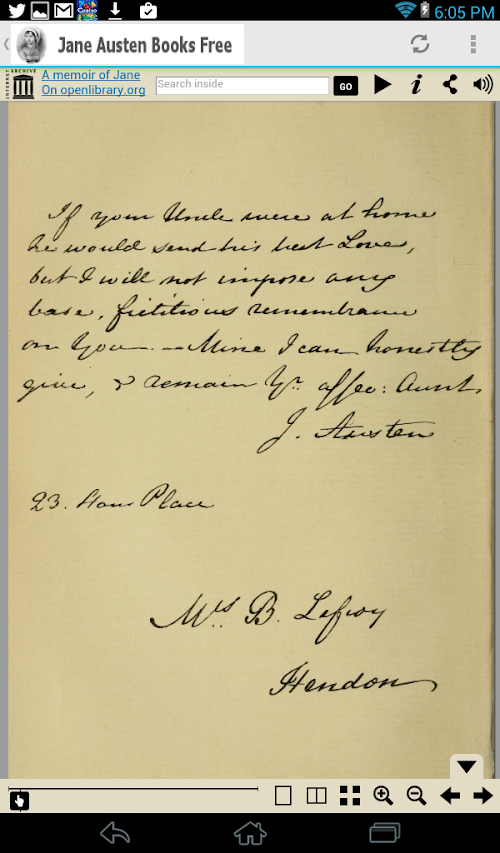 6:05 PM
Jane Austen Books Free
INTERNET ARCHIVE
A memoir of Jane
On openlibrary.org
Search inside
GO
If your Uncle were at home
he would send his best Love,
but I will not impose any
base, fictitious remembrance
on You. — Mine I can honestly
give, & remain Yr. affec: Aunt
J. Austen
23. Hans Place
Mrs B. Lefroy
Hendon